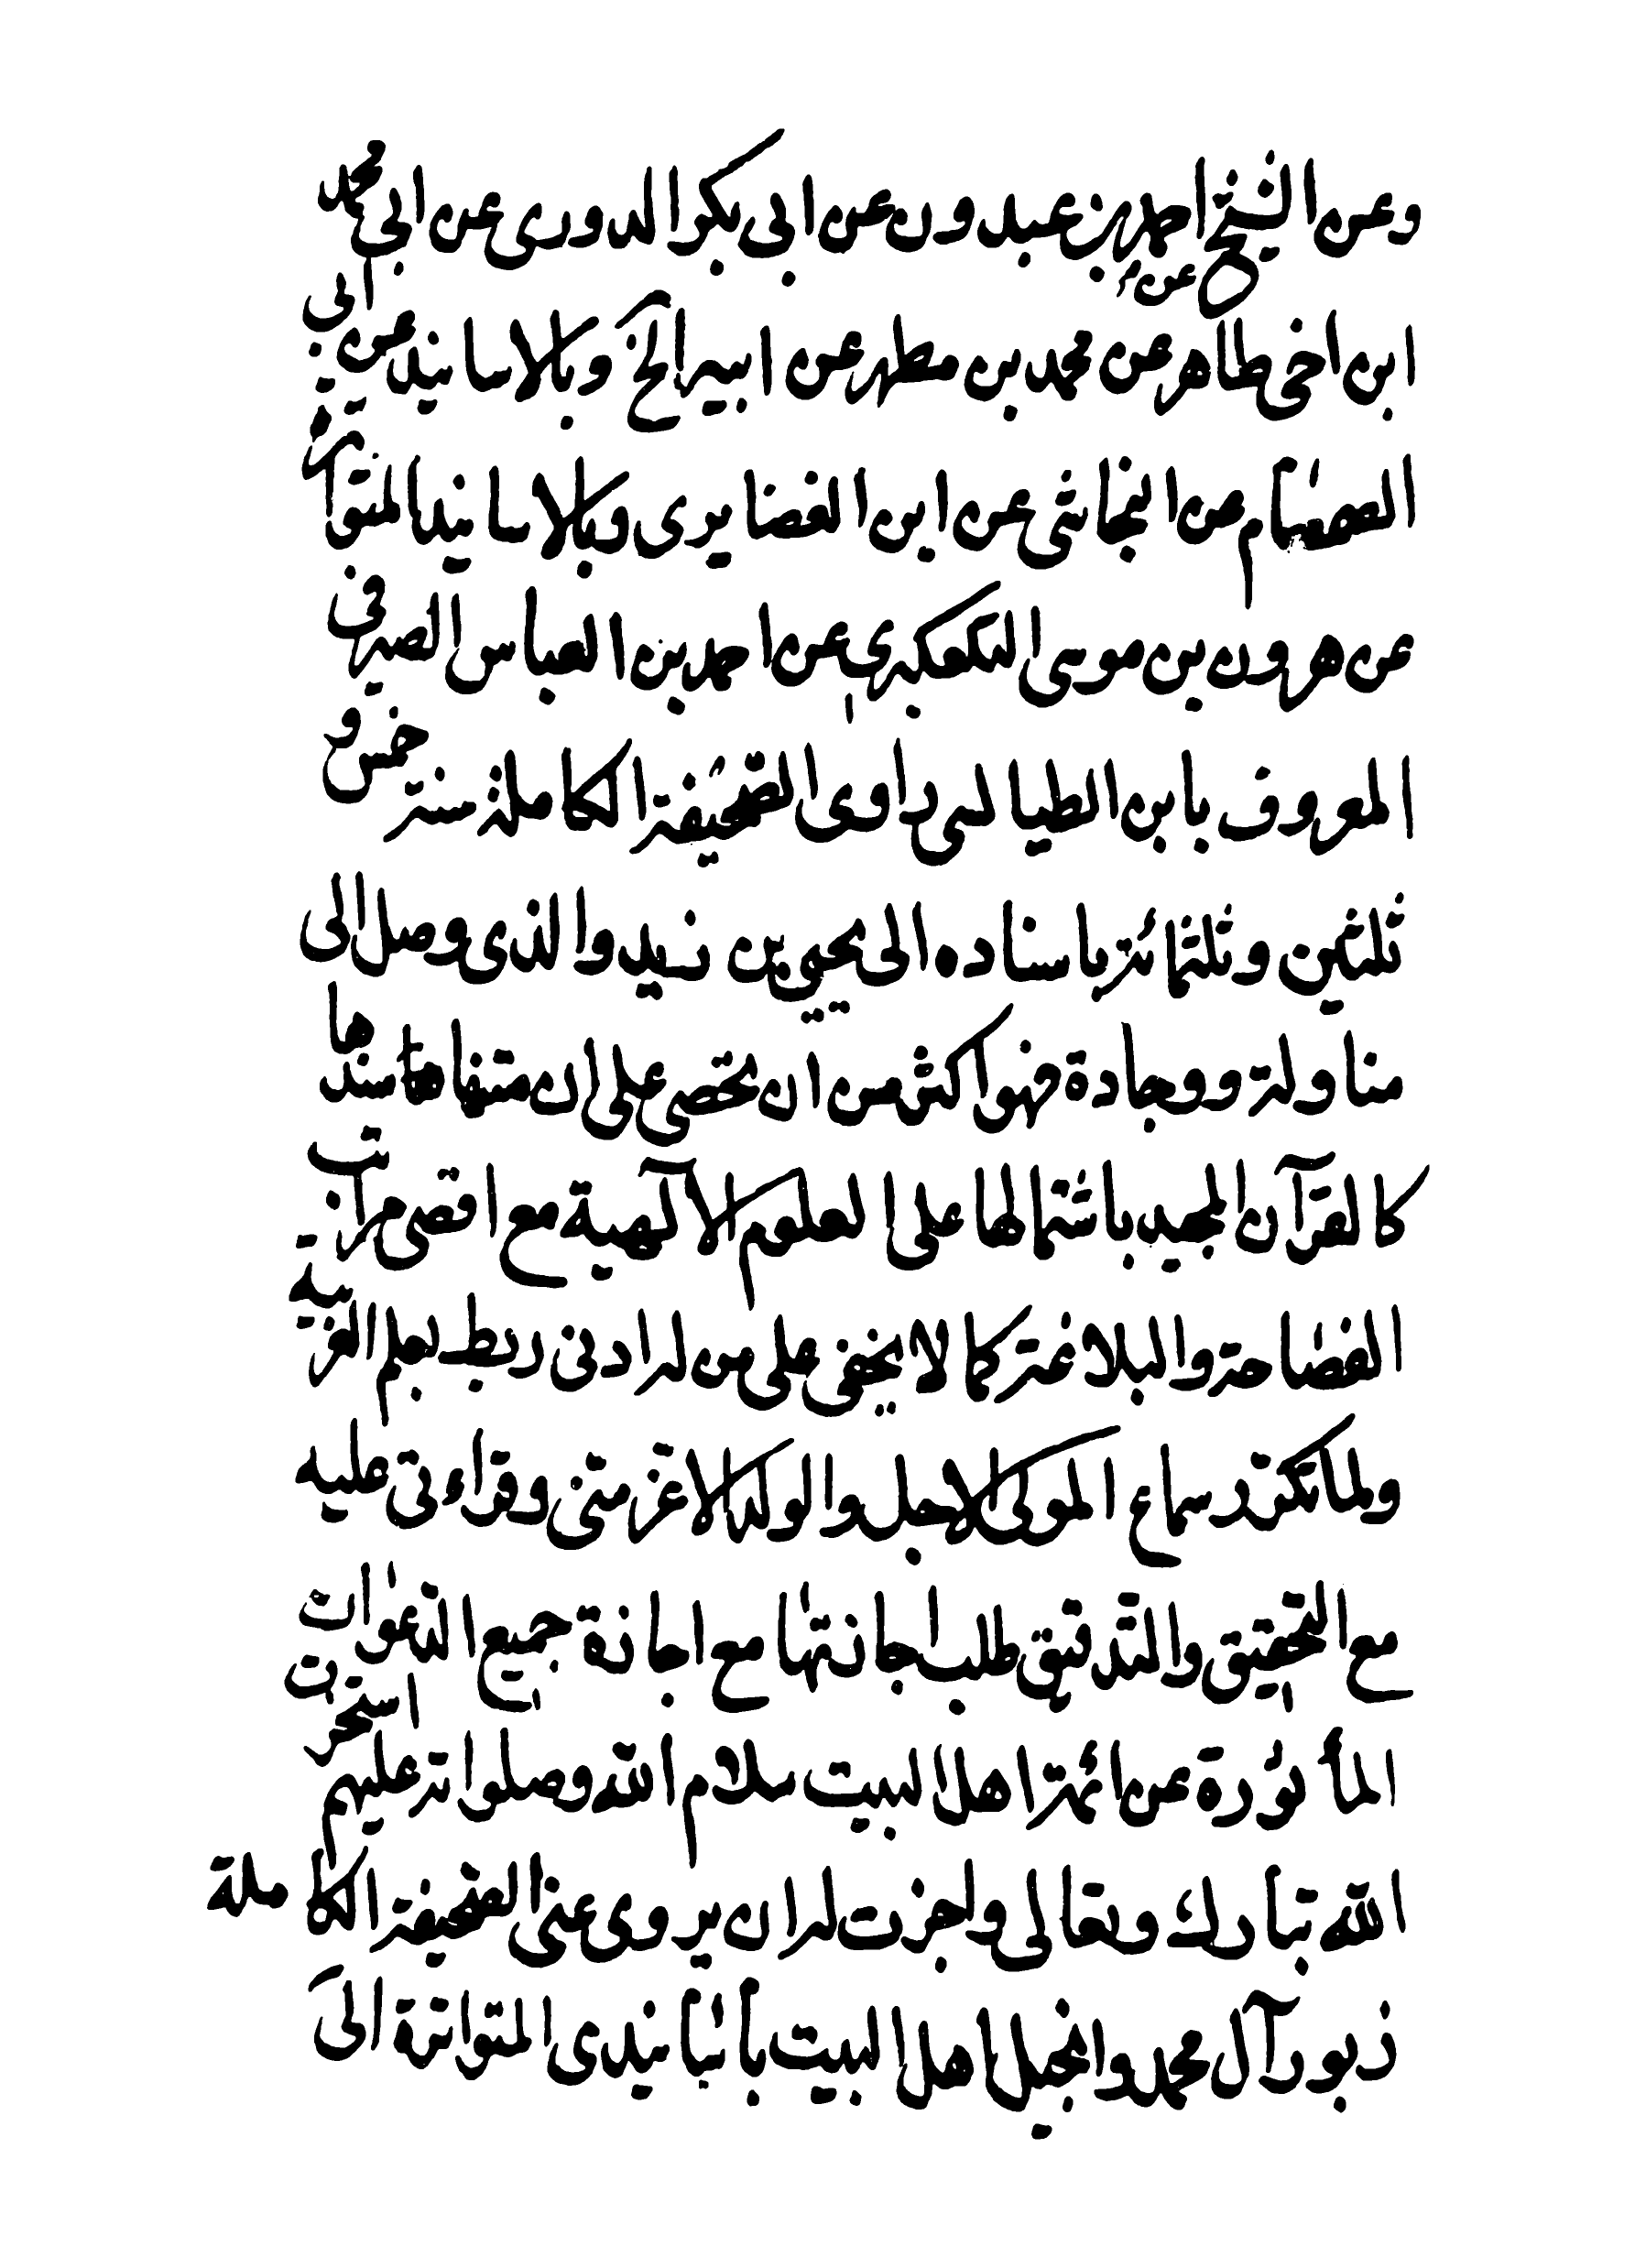 وعن الشيخ احمد بن عبدون عن ابى بكر الدورى عن ابى محمد
عن
ابن اخى طاهر عن محمد بن مطهر عن ابيه الخ وبالاسانيد عن ابى
الصمصام عن النجاشى عن ابن الغضايرى وبالاسانيد المتواترة
عن هرون بن موسى التلعكبرى عن احمد بن العباس الصيرفى
المعروف بابن الطيالسى راوى الصحيفة الكاملة سنة خمس و
ثلثين وثلثمائة باسناده الى يحيى بن زيد والذى وصل الى
مناولة ووجادة فهو اكثر من ان تحصى على ان متنها سندها
كالقرآن المجيد باشتمالها على العلوم الآلهية مع اقصى مراتب
الفصاحة والبلاغة كما لا يخفى على من له ادنى ربط بعلم العربية
ولما تكرر سماع المولى الاجل والولد الاعز متنى وقراءتى عليه
مع التحقيق والتدقيق طلب اجازتها مع اجازة جميع الدعوات
المأثورة عن ائمة اهل البيت سلام الله وصلواته عليهم استخرت
الله تبارك وتعالى واجزت له ان يروى عنى الصحيفة الكاملة
زبور آل محمد وانجيل اهل البيت بأسانيدى المتواترة الى